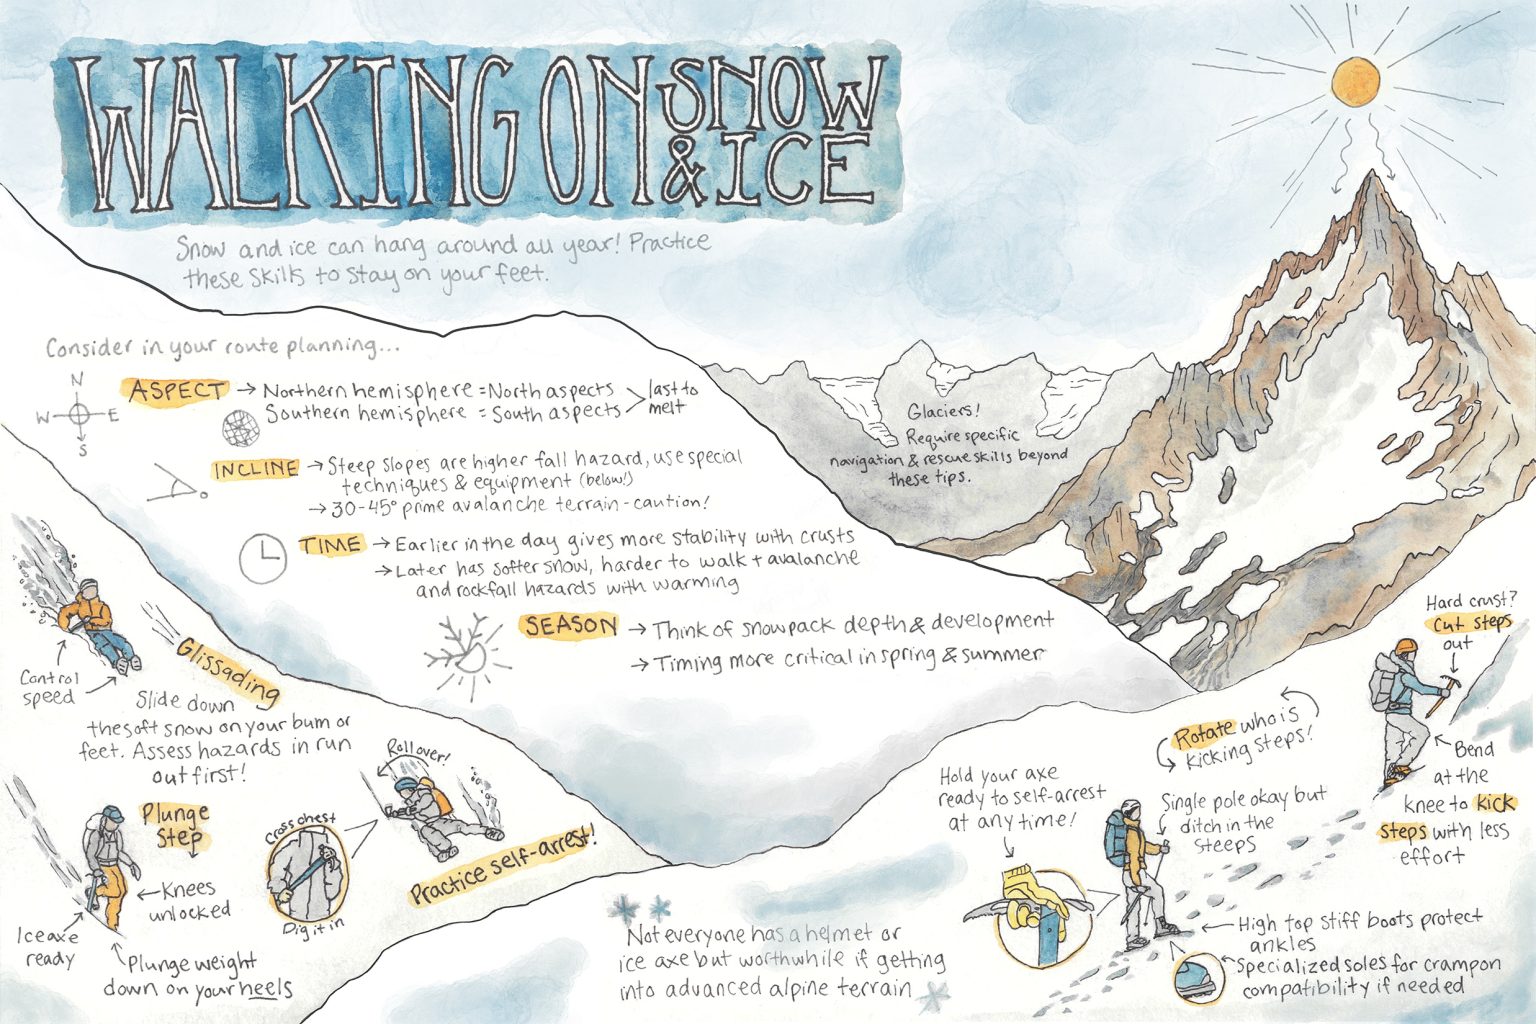 WALKING ON SNOW
& ICE
Snow and ice can hang around all year! Practice
these skills to stay on your feet.
Consider in your route planning...
N
W E
S
ASPECT → Northern hemisphere = North aspects
Southern hemisphere = South aspects
last to
melt
INCLINE → Steep slopes are higher fall hazard, use special
techniques & equipment (below!)
→ 30-45° prime avalanche terrain - caution!
TIME → Earlier in the day gives more stability with crusts
→ Later has softer snow, harder to walk + avalanche
and rockfall hazards with warming
SEASON → Think of snowpack depth & development
→ Timing more critical in spring & summer
Glaciers!
Require specific
navigation & rescue skills beyond
these tips.
Control
speed
Glissading
Slide down
the soft snow on your bum or
feet. Assess hazards in run
out first!
Plunge
Step
Knees
unlocked
Ice axe
ready
Plunge weight
down on your heels
Roll over!
Cross chest
Dig it in
Practice self-arrest!
Not everyone has a helmet or
ice axe but worthwhile if getting
into advanced alpine terrain
Hold your axe
ready to self-arrest
at any time!
Rotate who is
kicking steps!
Single pole okay but
ditch in the
steeps
Hard crust?
Cut steps
out
Bend
at the
knee to kick
steps with less
effort
High top stiff boots protect
ankles
Specialized soles for crampon
compatibility if needed